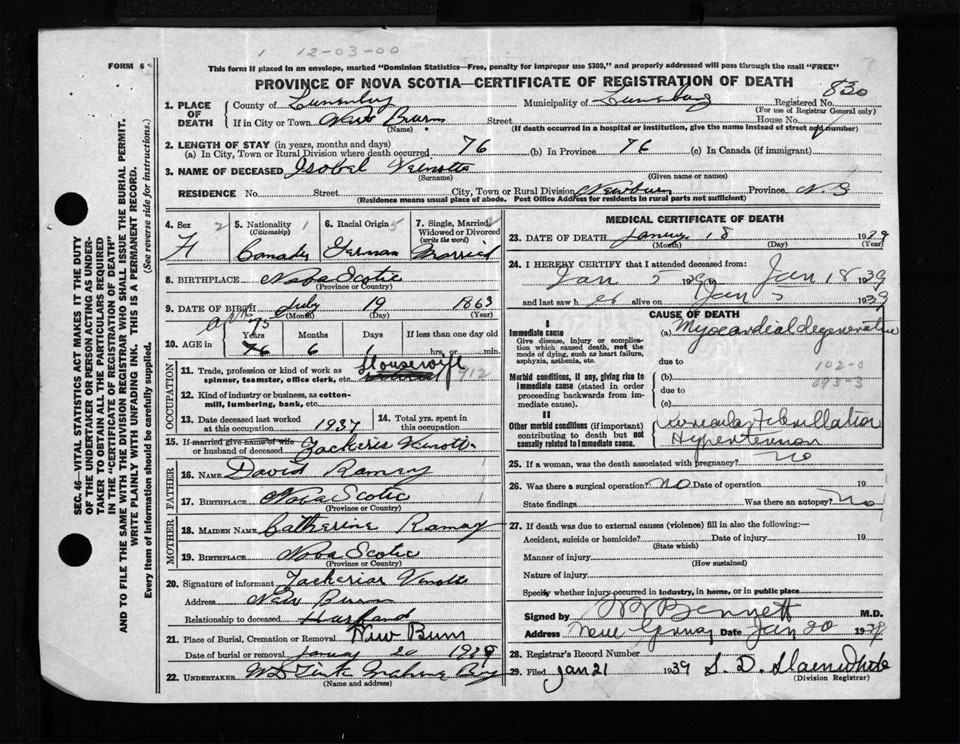 1 12-03-00
FORM 6
This form if placed in an envelope, marked "Dominion Statistics—Free, penalty for improper use $300," and properly addressed will pass through the mail "FREE"
PROVINCE OF NOVA SCOTIA—CERTIFICATE OF REGISTRATION OF DEATH
830
1. PLACE OF DEATH
County of Lunenburg Municipality of Lunenburg Registered No.
(For use of Registrar General only)
If in City or Town New Burn Street House No.
(Name) (If death occurred in a hospital or institution, give the name instead of street and number)
2. LENGTH OF STAY (in years, months and days)
(a) In City, Town or Rural Division where death occurred 76 (b) In Province 76 (c) In Canada (if immigrant)
3. NAME OF DECEASED Isobel Veinotte
(Surname) (Given name or names)
RESIDENCE No. Street City, Town or Rural Division Newburn Province N.S
(Residence means usual place of abode. Post Office Address for residents in rural parts not sufficient)
4. Sex 2 F
5. Nationality (Citizenship) 1 Canada
6. Racial Origin 5 German
7. Single, Married, Widowed or Divorced (write the word) Married
8. BIRTHPLACE Nova Scotia
(Province or Country)
9. DATE OF BIRTH July 19 1863
(Month) (Day) (Year)
75
10. AGE in Years Months Days If less than one day old
76 6 hrs. or min.
OCCUPATION
11. Trade, profession or kind of work as spinner, teamster, office clerk, etc. Housewife 912
12. Kind of industry or business, as cotton-mill, lumbering, bank, etc.
13. Date deceased last worked at this occupation 1937
14. Total yrs. spent in this occupation
15. If married give name of wife or husband of deceased Zackeris Veinott
FATHER
16. NAME David Ramey
17. BIRTHPLACE Nova Scotia
(Province or Country)
MOTHER
18. MAIDEN NAME Catherine Ramay
19. BIRTHPLACE Nova Scotia
(Province or Country)
20. Signature of informant Zackeriar Vinotte
Address New Burn
Relationship to deceased Husband
21. Place of Burial, Cremation or Removal New Burn
Date of burial or removal January 20 1939
22. UNDERTAKER
(Name and address)
MEDICAL CERTIFICATE OF DEATH
23. DATE OF DEATH January 18 1939
(Month) (Day) (Year)
24. I HEREBY CERTIFY that I attended deceased from:
Jan 5 1939 to Jan 18 1939
and last saw h er alive on Jan 5 1939
CAUSE OF DEATH
I
Immediate cause (a) Myocardial degeneration
Give disease, injury or complication which caused death, not the mode of dying, such as heart failure, asphyxia, asthenia, etc.
due to
102-0
093-3
Morbid conditions, if any, giving rise to immediate cause (stated in order proceeding backwards from immediate cause).
(b)
due to
(c)
II
Other morbid conditions (if important) contributing to death but not causally related to immediate cause.
Auricular Fibrillation
Hypertension
25. If a woman, was the death associated with pregnancy? no
26. Was there a surgical operation? no Date of operation 19
State findings Was there an autopsy? no
27. If death was due to external causes (violence) fill in also the following:—
Accident, suicide or homicide? Date of injury 19
(State which)
Manner of injury
(How sustained)
Nature of injury
Specify whether injury occurred in industry, in home, or in public place
Signed by Bennett M.D.
Address New Germany Date Jan 20 1939
28. Registrar's Record Number
29. Filed Jan 21 1939 S. D.
(Division Registrar)
SEC. 46—VITAL STATISTICS ACT MAKES IT THE DUTY
OF THE UNDERTAKER OR PERSON ACTING AS UNDER-
TAKER TO OBTAIN ALL THE PARTICULARS REQUIRED
IN THE "CERTIFICATE OF REGISTRATION OF DEATH"
AND TO FILE THE SAME WITH THE DIVISION REGISTRAR WHO SHALL ISSUE THE BURIAL PERMIT.
WRITE PLAINLY WITH UNFADING INK. THIS IS A PERMANENT RECORD.
Every item of information should be carefully supplied. (See reverse side for instructions.)